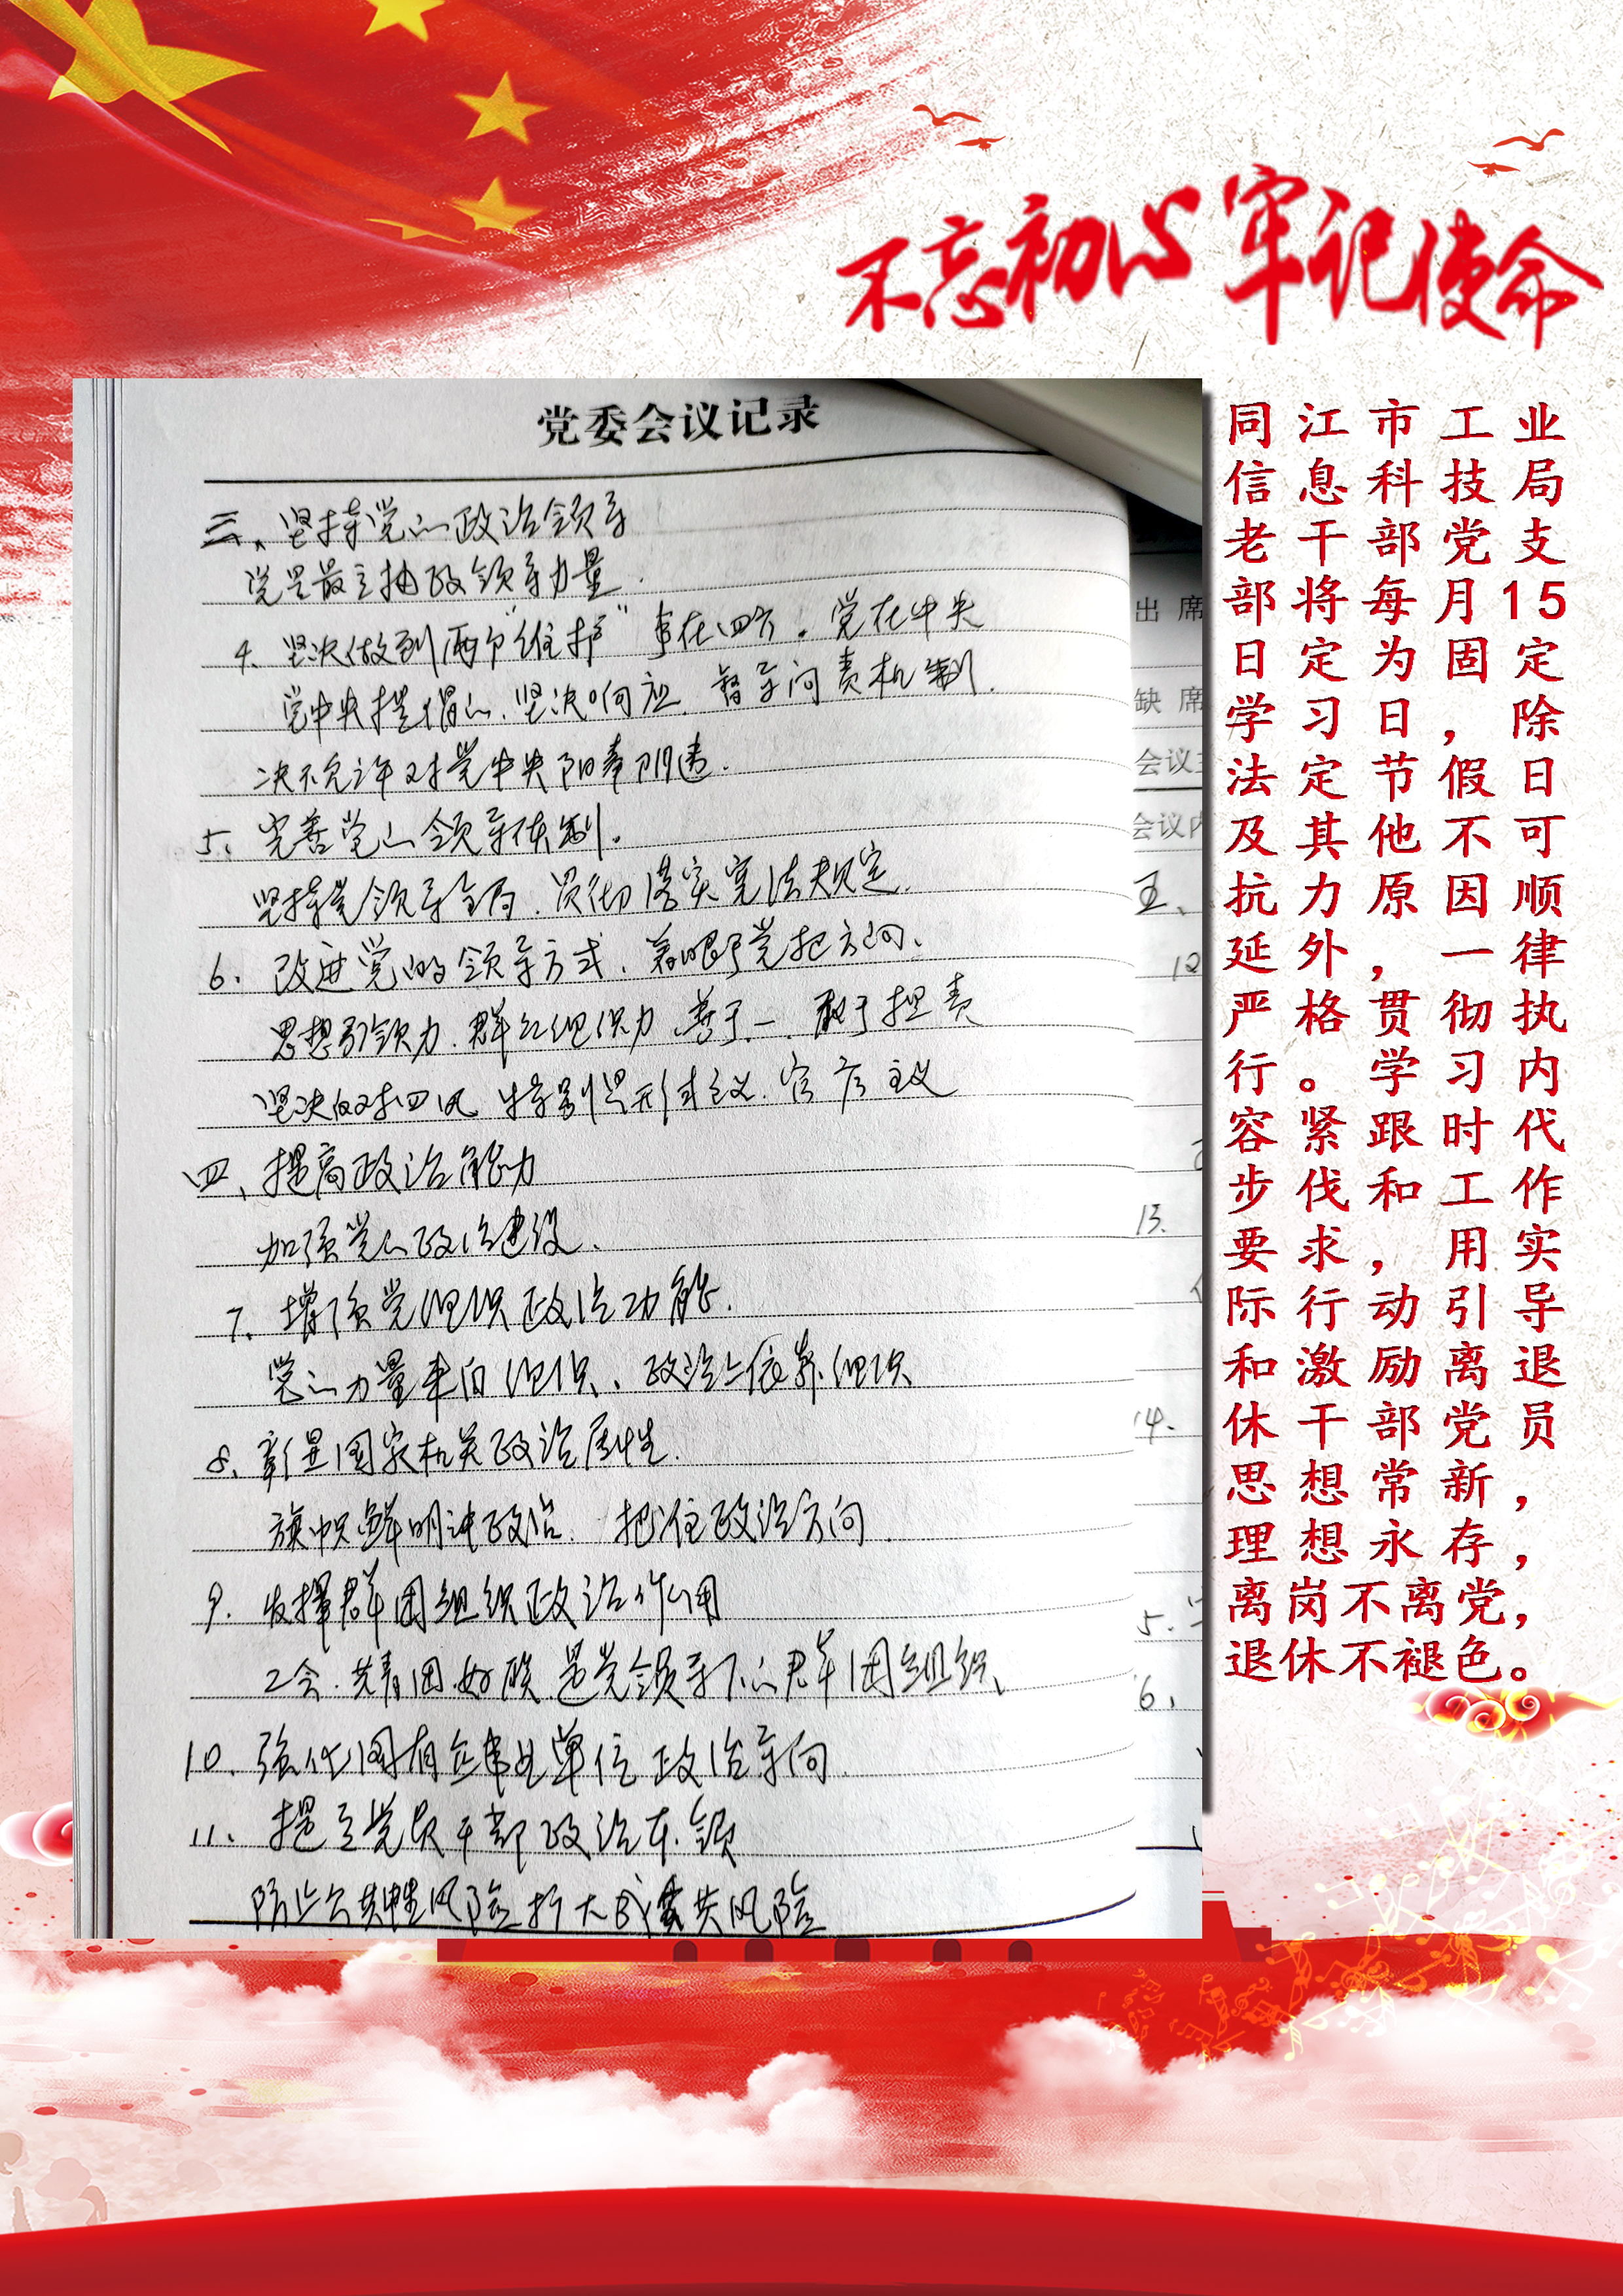 不忘初心 牢记使命
党委会议记录
三、坚持党的政治领导
党是最高政治领导力量.
4. 坚决做到两个“维护” 事在四方。党在中央
党中央提倡的、坚决响应. 督导问责机制.
决不允许对党中央阳奉阴违.
5. 完善党的领导体制。
坚持党领导全局. 贯彻落实宪法规定.
6. 改进党的领导方式. 着眼于党把方向、
思想引领力. 群众组织力 善于 敢于担责
坚决反对四风 特别是形式主义. 官僚主义
四、提高政治能力
加强党的政治建设.
7. 增强党组织政治功能.
党的力量来自组织、政治上依靠组织
8. 彰显国家机关政治属性.
旗帜鲜明讲政治. 把准政治方向.
9. 发挥群团组织政治作用
工会.共青团.妇联 是党领导下的群团组织、
10. 强化国有企事业单位政治导向.
11. 提高党员干部政治本领
防止公共性风险扩大成公共风险
出 席
缺 席
会议主
会议内
五、
12
13.
14.
5.
6.
同江市工业
信息科技局
老干部党支
部将每月15
日定为固定
学习日，除
法定节假日
及其他不可
抗力原因顺
延外，一律
严格贯彻执
行。学习内
容紧跟时代
步伐和工作
要求，用实
际行动引导
和激励离退
休干部党员
思想常新，
理想永存，
离岗不离党，
退休不褪色。